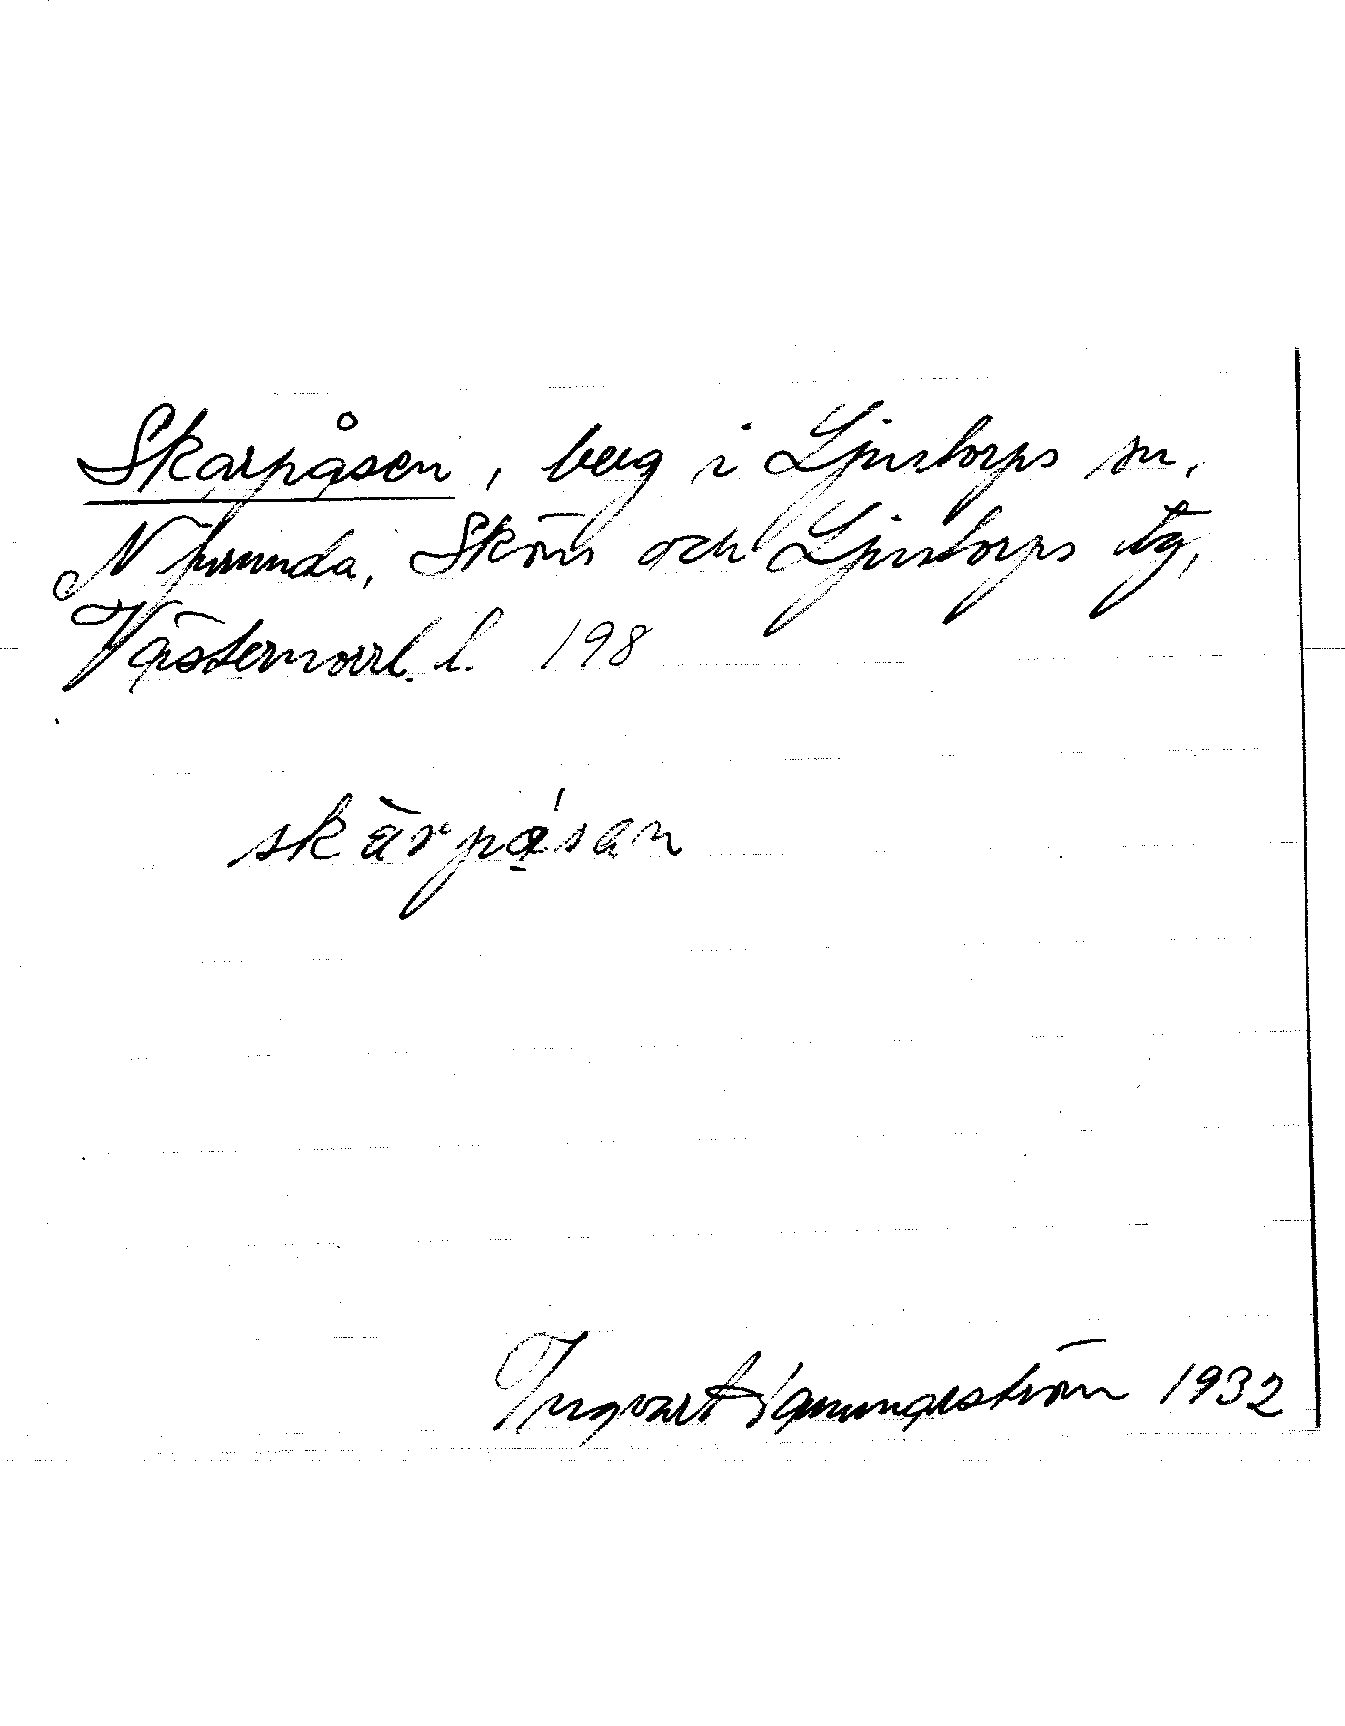 Skarpåsen, berg i Ljustorps sn,
Njurunda, Sköns och Ljustorps tg,
Västernorrl. l. 198
skàrpåsan
Ingvart 1932